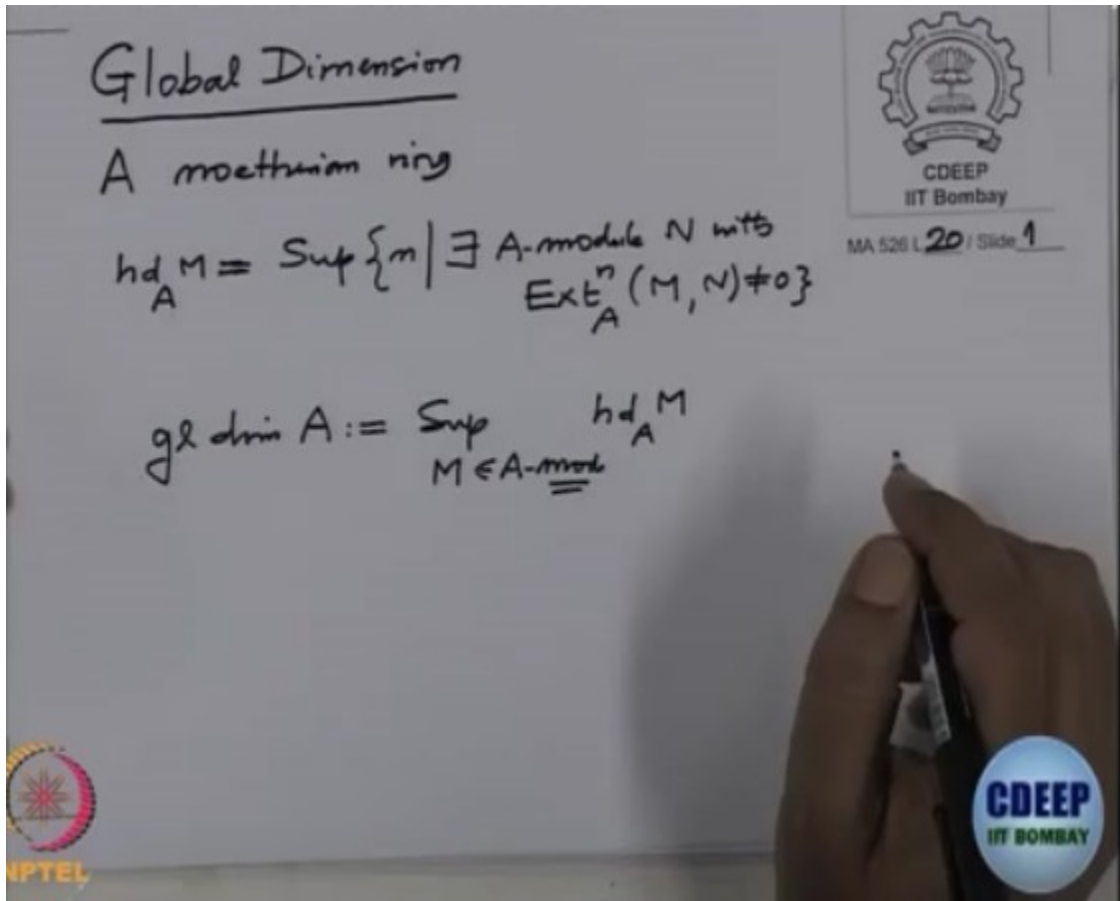 Global Dimension
A noetherian ring
hd_A M = Sup {n | ∃ A-module N with
Ext_A^n (M, N) ≠ 0}
gl dim A := Sup hd_A M
M ∈ A-mod
CDEEP
IIT Bombay
MA 526 L 20 / Slide 1
NPTEL
CDEEP
IIT BOMBAY